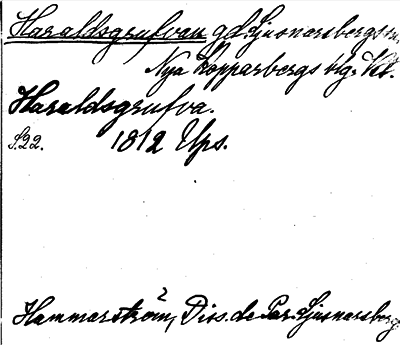 Haraldsgrufvan gd. Ljusnarsbergs sn.
Nya Kopparbergs blg. Vtl.
Haraldsgrufva.
S.22. 1812 Ups.
Hammarström, Diss. de Par. Ljusnarsberg